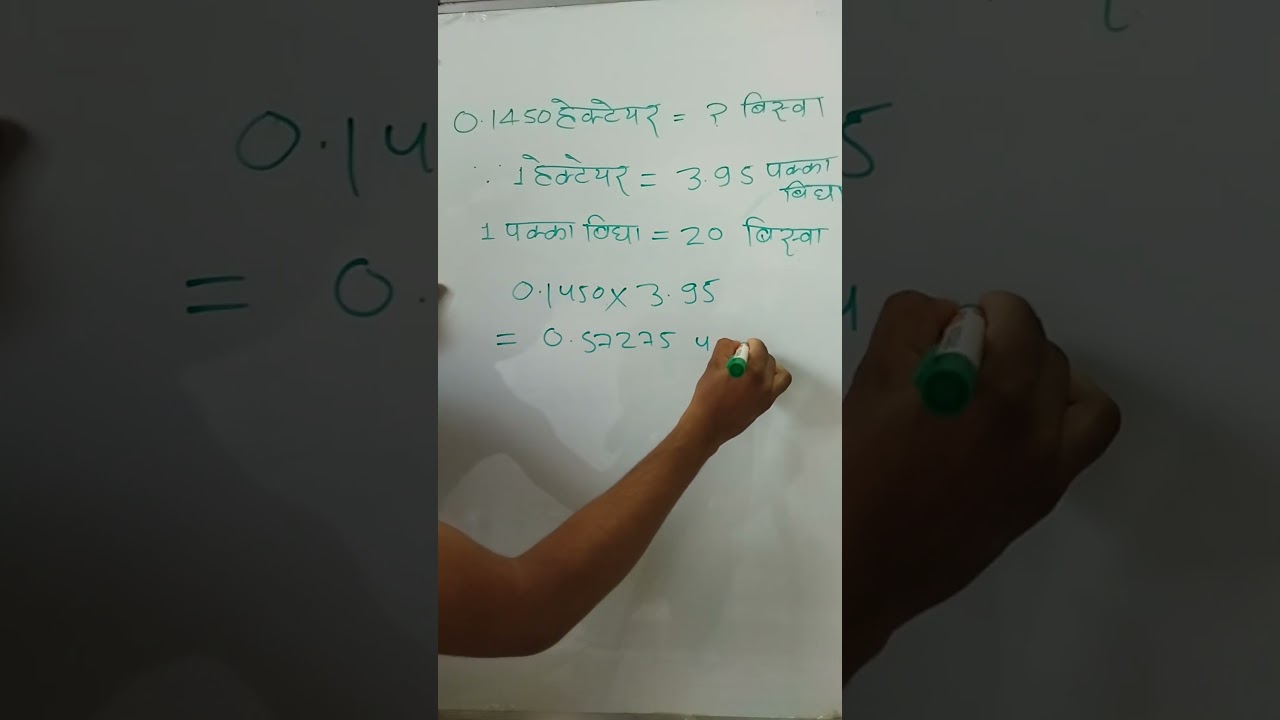 0.1450 हेक्टेयर = ? बिस्वा
∵ 1 हेक्टेयर = 3.95 पक्का बिघा
1 पक्का विघा = 20 बिस्वा
0.1450 x 3.95
= 0.57275 प